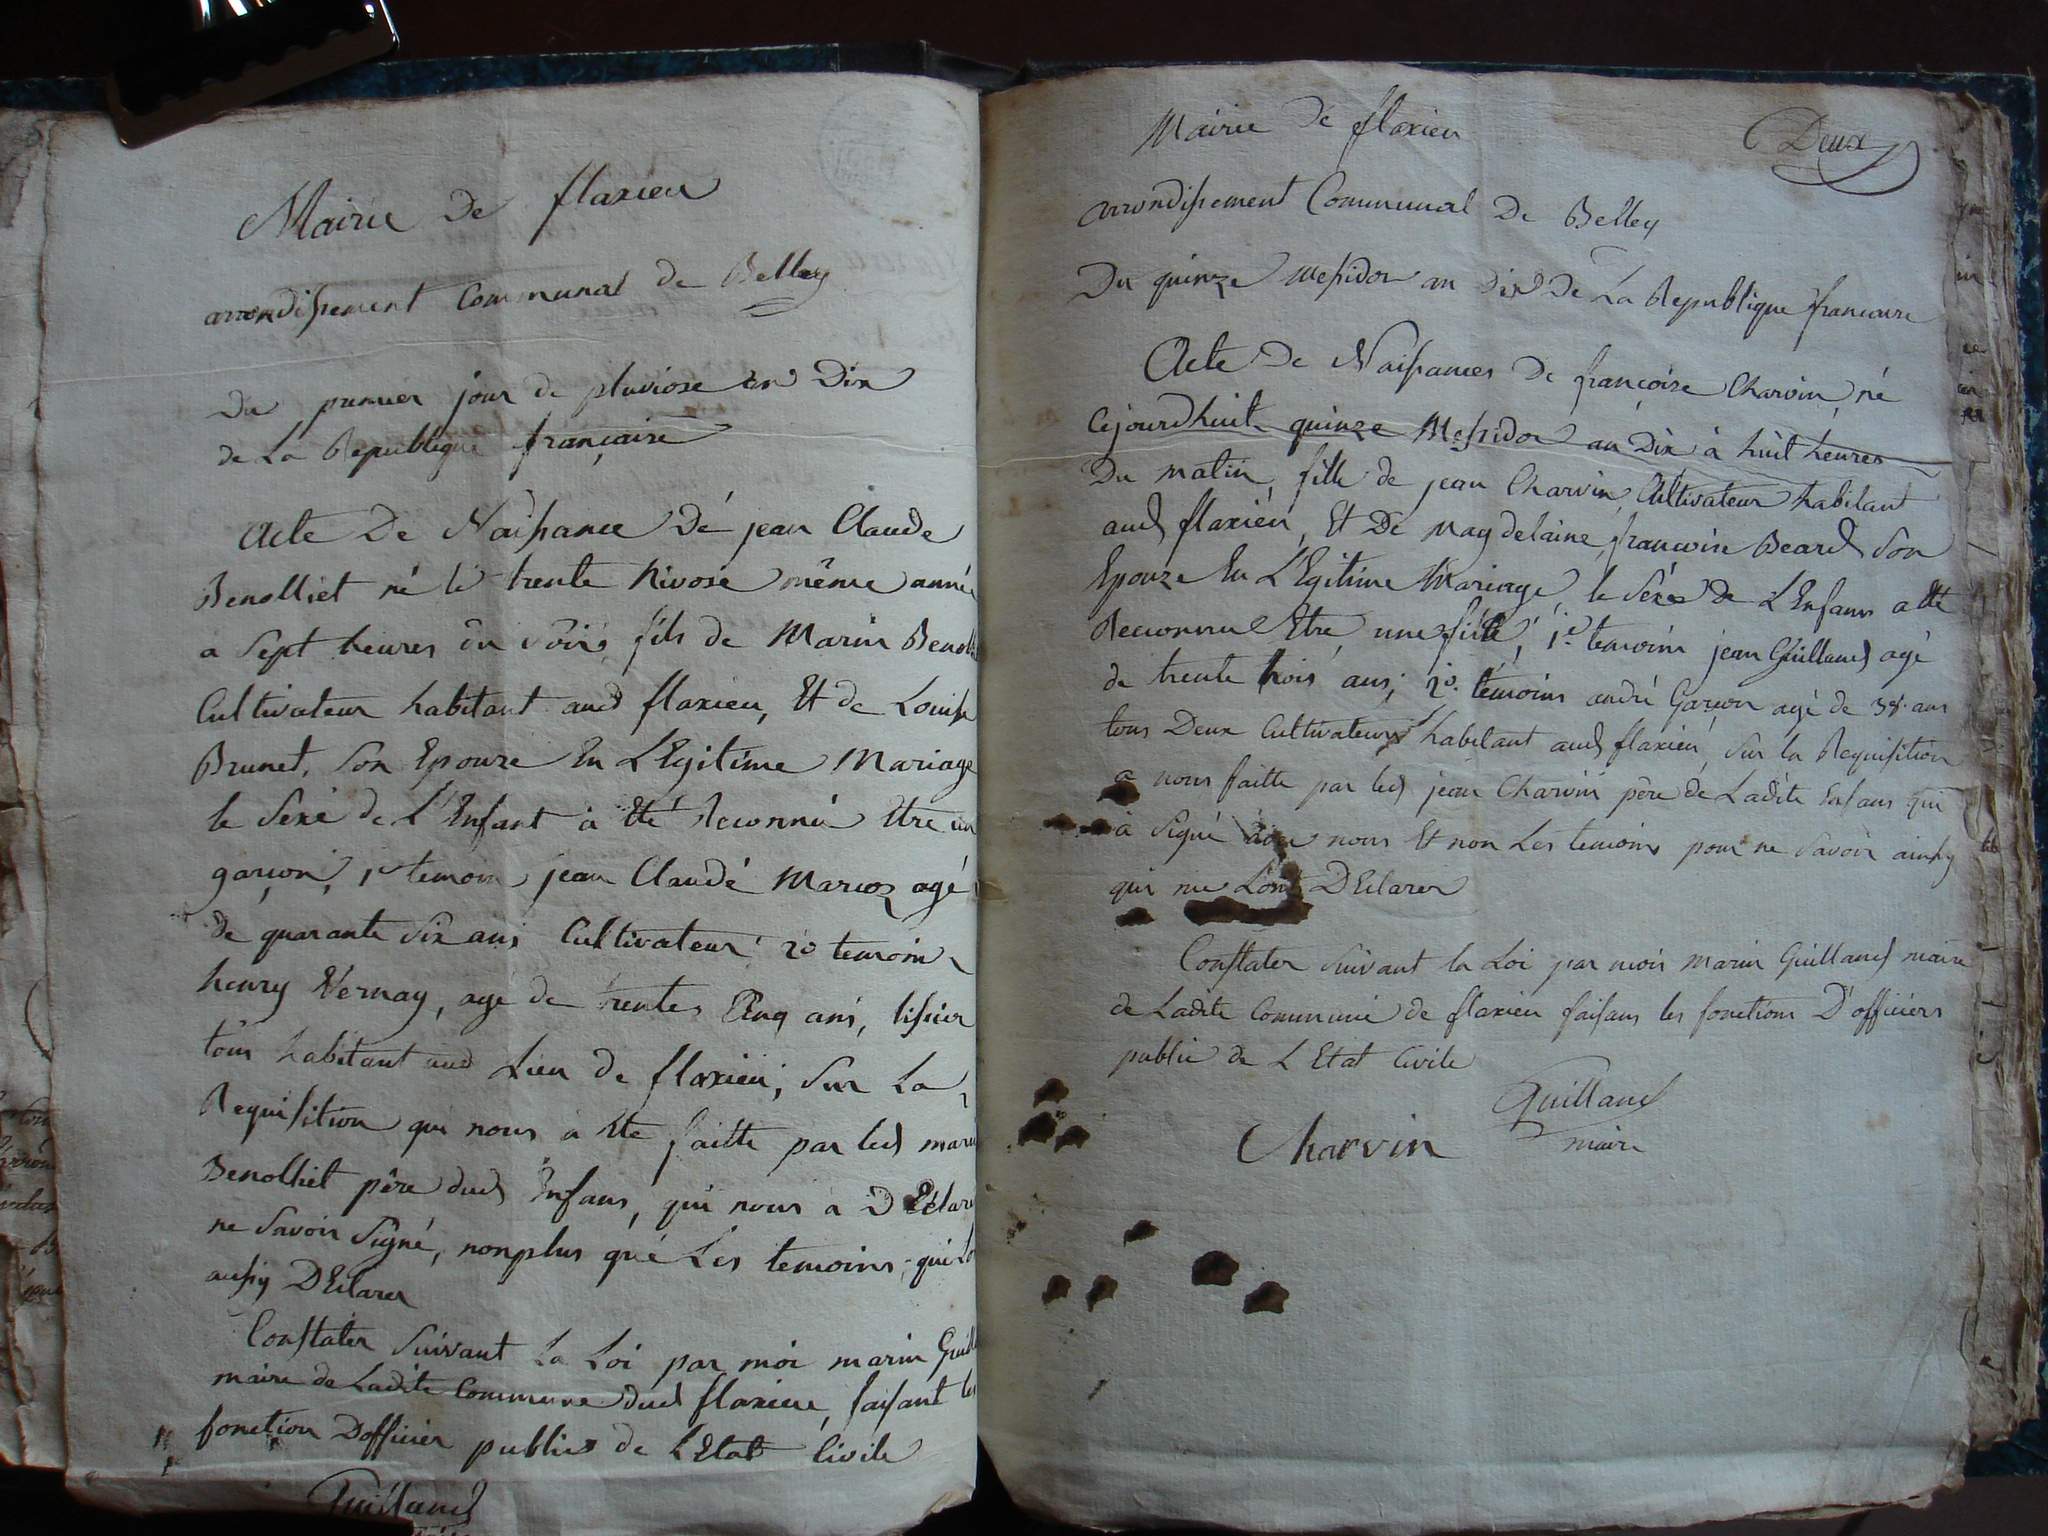 Mairie De flaxieu
arrondissement Communal de Belley
Du premier jour de pluviose an Dix
de La Republique française
Acte De Naissance Dé jean Claude
Benolliet né le trente Nivose même année
a Sept heures du soir, fils de Marin Benoll
Cultivateur habitant aud flaxieu, Et de Louise
Brunet, Son Epouze En LEgitime Mariage
le Sexe de L'Enfant à été Reconnu Etre un
garçon, 1er temoin jean Claude Marcoz agé
de quarante Six ans Cultivateur 2e temoin
henry Vernay, agé de trente Cinq ans, tissier
tous habitant aud Lieu de flaxieu, Sur La
Requisition qui nous a Ete faitte par led marin
Benolliet père dud Enfans, qui nous a DEclaré
ne Savoir Signé, nonplus que Les temoins, qui Lo
aussy DEclarer
Constater Suivant La Loi par moi marin Guill
maire de Ladite Commune dud flaxieu, faisant les
fonction Dofficier public de LEtat Civile
Guilland
Mairie De flaxieu
Deux
arrondissement Communal De Belley
Du quinze Messidor an Dix De La Republique francaise
Acte De Naissances De françoise Charvin, né
Cejourdhuit quinze Messidor an Dix à huit heures
Du matin, fille de jean Charvin Cultivateur habitant
aud flaxieu, Et De Magdelaine françoise Beard Son
Epouze En LEgitime Mariage, le Séxe De LEnfans a été
Reconnu Etre une fille, 1e temoin jean Guilland agé
de trente trois ans; 2e temoins andré Garçon agé de 38 ans
tous Deux Cultivateurs habitant aud flaxieu, Sur la Requisition
a nous faitte par led jean Charvin père de Ladite Enfans qui
à Signé avec nous Et non Les temoins pour ne Savoir ainsy
qui me Lont DEclarer
Constater Suivant la Loi par moi marin Guilland maire
de Ladite Commune de flaxieu faisans les fonctions D'officiers
public de LEtat Civile
Guilland
maire
Charvin